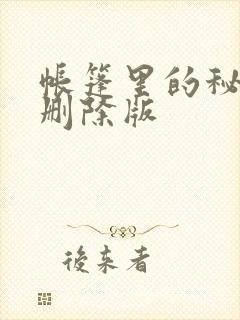 帐篷里的秘
删除版
後来者